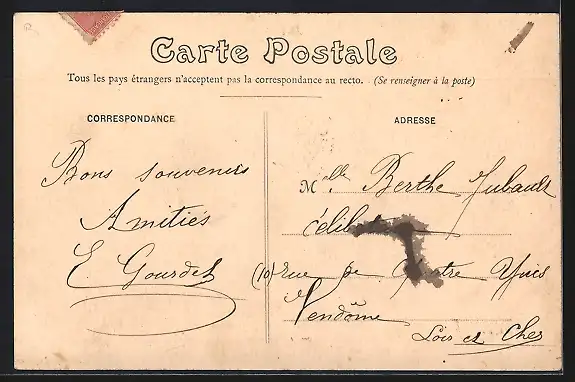 Carte Postale
Tous les pays étrangers n'acceptent pas la correspondance au recto. (Se renseigner à la poste)
CORRESPONDANCE
Bons souvenirs
Amitiés
E. Gourdet
ADRESSE
Melle Berthe Jubault
(10) rue de
Vendôme
Loir et Cher